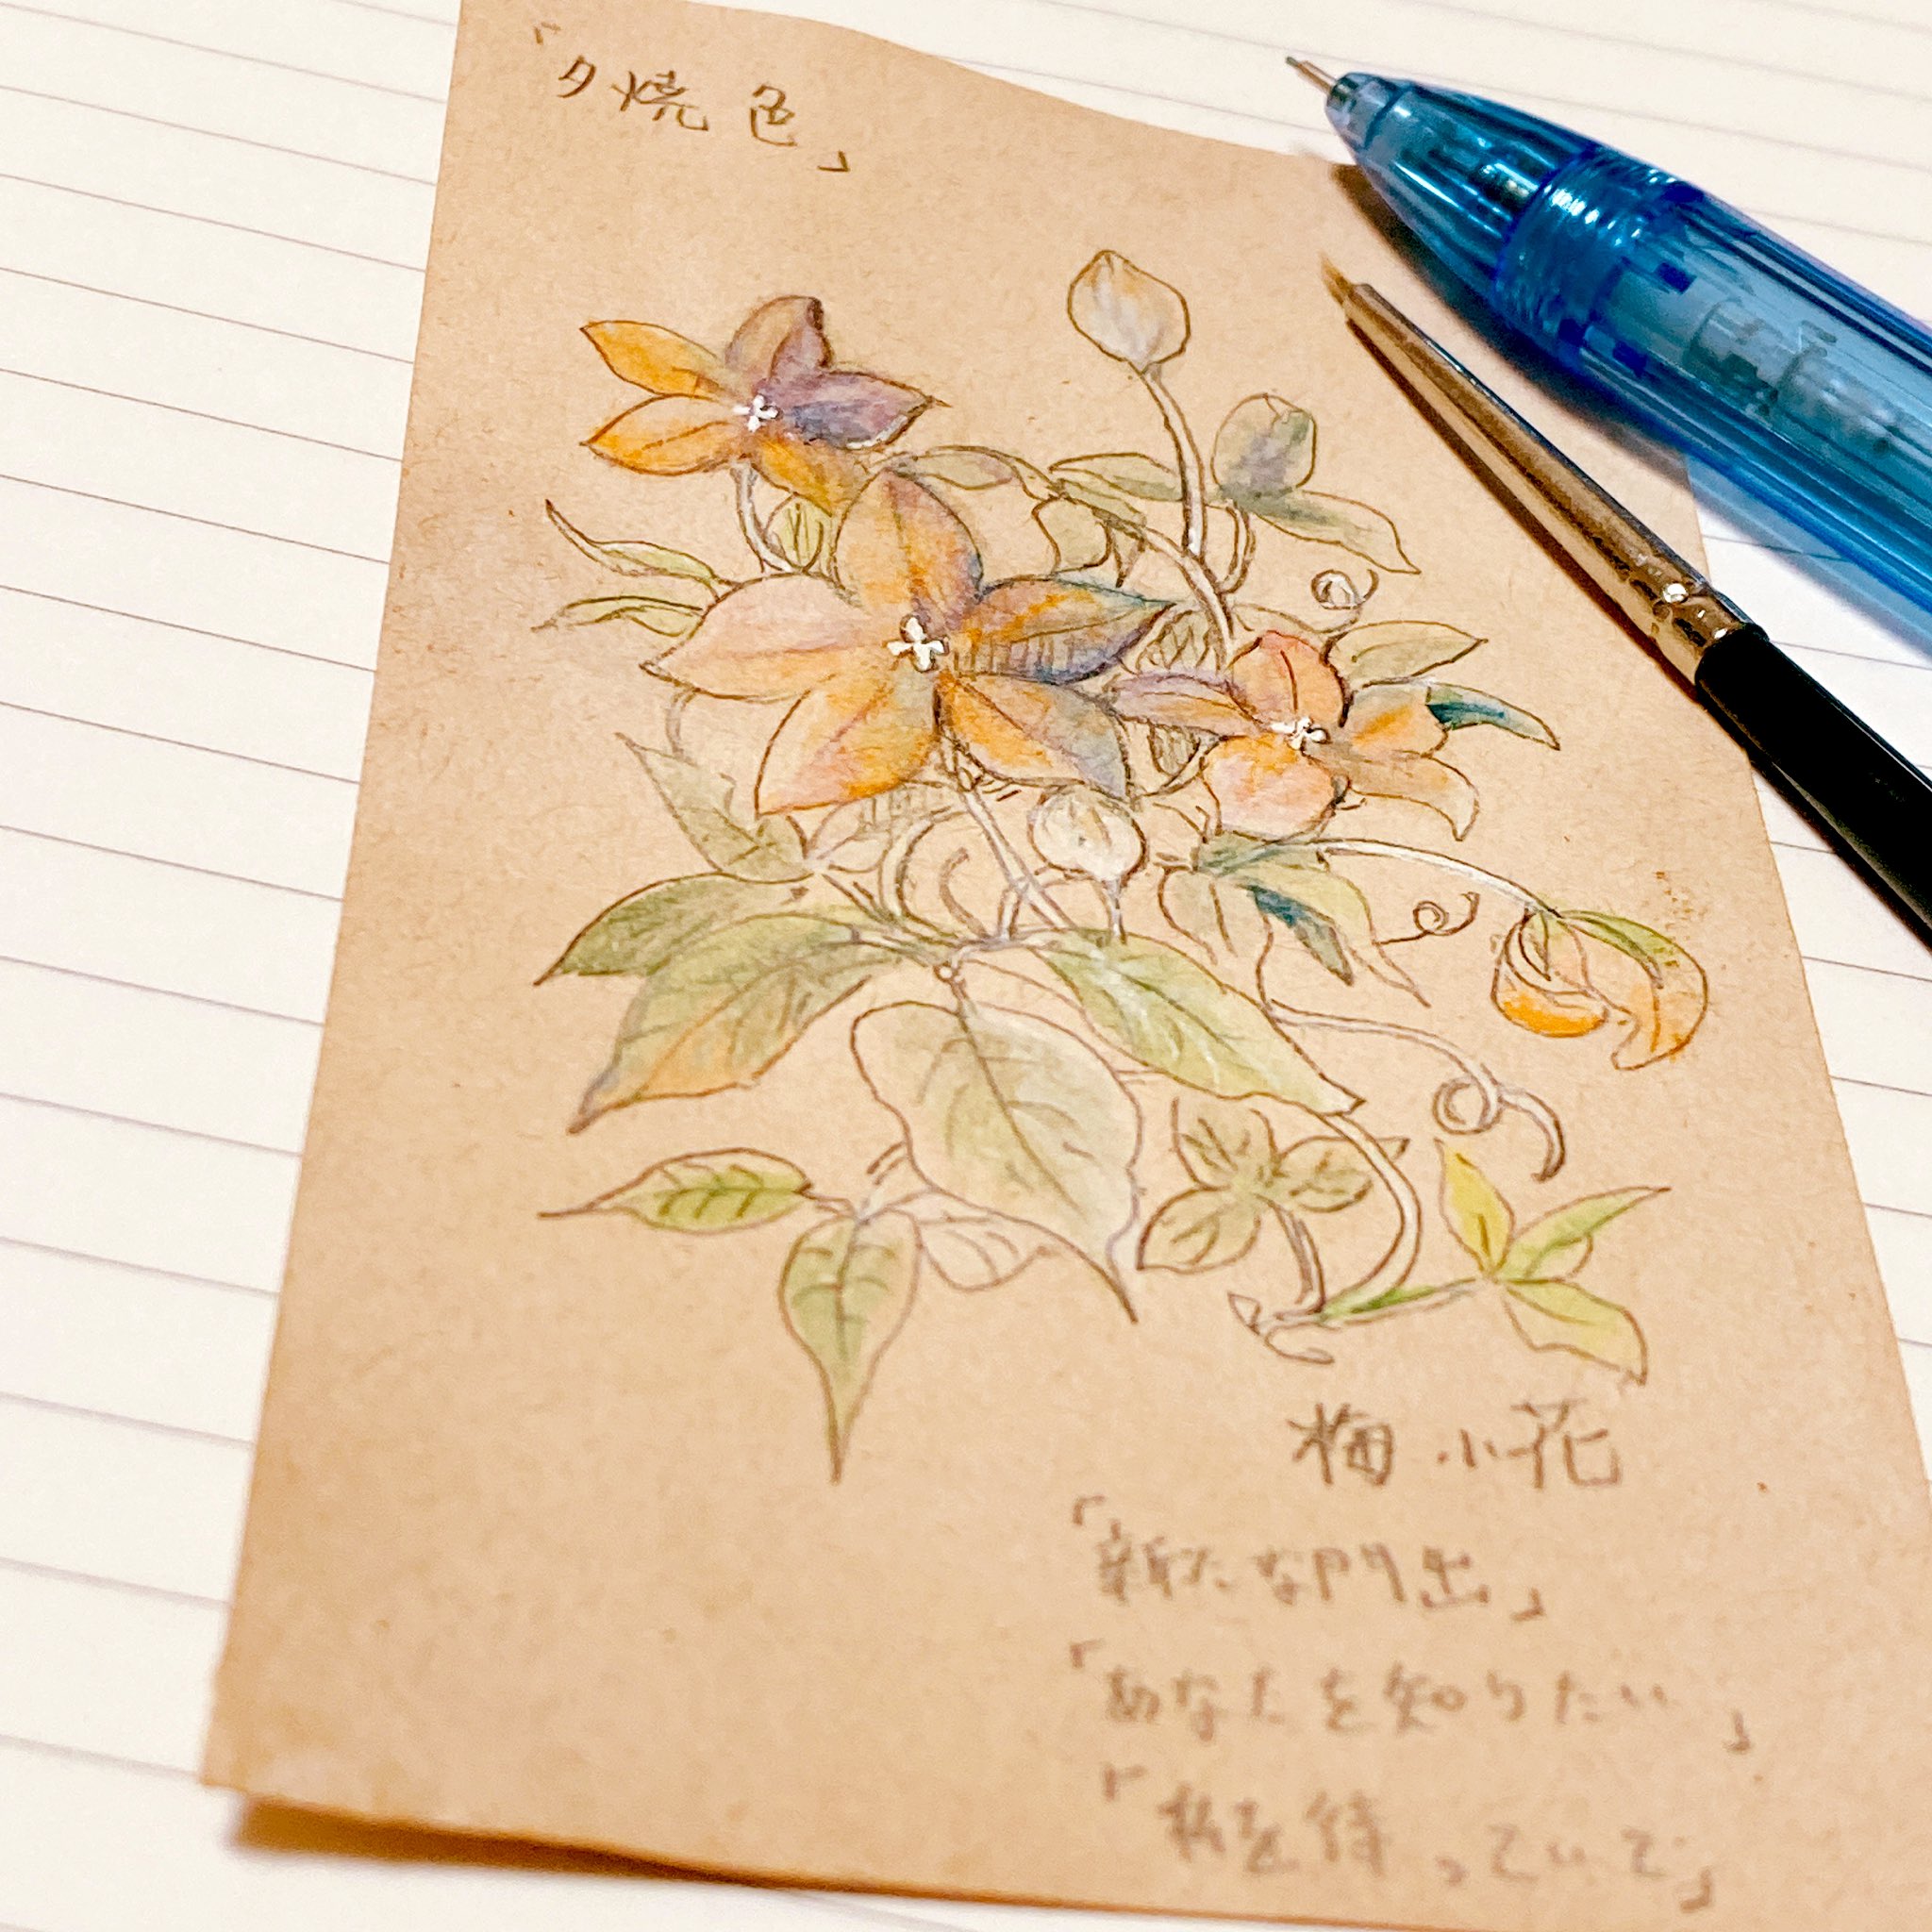 「夕焼色」
梅小花
「新たな門出」
「あなたを知りたい」
「私を待っていて」